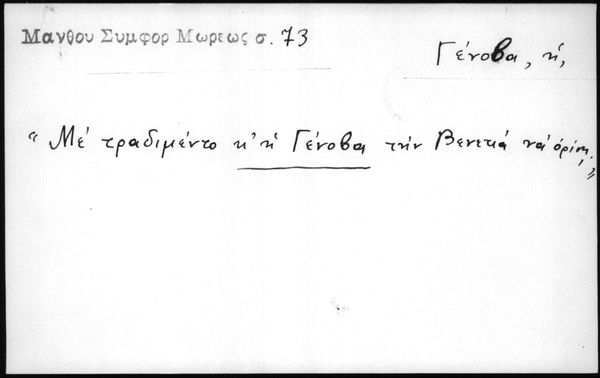 Μανθου Συμφορ Μωρεως σ. 73
Γένοβα, ἡ,
“ Μέ τραδιμέντο κ' ἡ Γένοβα τήν Βενετιά νά ὁρίσῃ. ”